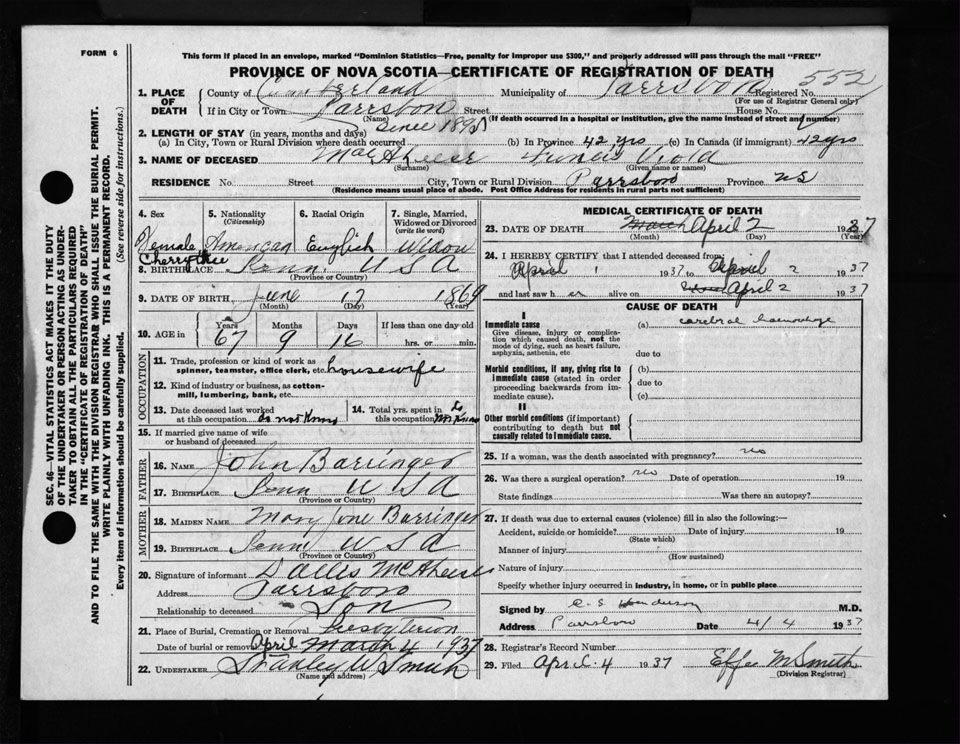 FORM 6
This form if placed in an envelope, marked "Dominion Statistics—Free, penalty for improper use $300," and properly addressed will pass through the mail "FREE"
PROVINCE OF NOVA SCOTIA—CERTIFICATE OF REGISTRATION OF DEATH
552
1. PLACE OF DEATH
County of Cumberland Municipality of Parrsboro Registered No.
(For use of Registrar General only)
If in City or Town Parrsboro Street House No.
(Name) (If death occurred in a hospital or institution, give the name instead of street and number)
2. LENGTH OF STAY (in years, months and days) Since 1895
(a) In City, Town or Rural Division where death occurred (b) In Province 42 yrs (c) In Canada (if immigrant) 42 yrs
3. NAME OF DECEASED
(Surname) (Given name or names)
RESIDENCE No. Street City, Town or Rural Division Parrsboro Province NS
(Residence means usual place of abode. Post Office Address for residents in rural parts not sufficient)
4. Sex Female
5. Nationality (Citizenship) American
6. Racial Origin English
7. Single, Married, Widowed or Divorced (write the word) Widow
Cherrytree
8. BIRTHPLACE Penn. U S A
(Province or Country)
9. DATE OF BIRTH June 17 1869
(Month) (Day) (Year)
10. AGE in Years 67 Months 9 Days 16 If less than one day old
hrs. or min.
OCCUPATION
11. Trade, profession or kind of work as spinner, teamster, office clerk, etc. housewife
12. Kind of industry or business, as cotton-mill, lumbering, bank, etc.
13. Date deceased last worked at this occupation do not know
14. Total yrs. spent in this occupation do not know
15. If married give name of wife or husband of deceased
FATHER
16. NAME John Barringer
17. BIRTHPLACE Penn U S A
(Province or Country)
MOTHER
18. MAIDEN NAME Mary Jane Barringer
19. BIRTHPLACE Penn U S A
(Province or Country)
20. Signature of informant Dallis
Address Parrsboro
Relationship to deceased Son
21. Place of Burial, Cremation or Removal Presbyterian
Date of burial or removal April March 4 1937
22. UNDERTAKER Stanley W Smith
(Name and address)
MEDICAL CERTIFICATE OF DEATH
23. DATE OF DEATH March April 2 1937
(Month) (Day) (Year)
24. I HEREBY CERTIFY that I attended deceased from:
April 1 1937 to April 2 1937
and last saw her alive on April 2 1937
CAUSE OF DEATH
I
Immediate cause (a) cerebral hemorrhage
Give disease, injury or complication which caused death, not the mode of dying, such as heart failure, asphyxia, asthenia, etc
due to
Morbid conditions, if any, giving rise to immediate cause (stated in order proceeding backwards from immediate cause).
(b)
due to
(c)
II
Other morbid conditions (if important) contributing to death but not causally related to immediate cause.
25. If a woman, was the death associated with pregnancy? no
26. Was there a surgical operation? no Date of operation 19
State findings Was there an autopsy?
27. If death was due to external causes (violence) fill in also the following:—
Accident, suicide or homicide? Date of injury 19
(State which)
Manner of injury
(How sustained)
Nature of injury
Specify whether injury occurred in industry, in home, or in public place
Signed by C. S. Henderson M.D.
Address Parrsboro Date 4/4 1937
28. Registrar's Record Number
29. Filed April 4 1937 Effie M Smith
(Division Registrar)
SEC. 46—VITAL STATISTICS ACT MAKES IT THE DUTY
OF THE UNDERTAKER OR PERSON ACTING AS UNDER-
TAKER TO OBTAIN ALL THE PARTICULARS REQUIRED
IN THE "CERTIFICATE OF REGISTRATION OF DEATH"
AND TO FILE THE SAME WITH THE DIVISION REGISTRAR WHO SHALL ISSUE THE BURIAL PERMIT.
WRITE PLAINLY WITH UNFADING INK. THIS IS A PERMANENT RECORD.
Every item of information should be carefully supplied. (See reverse side for instructions.)